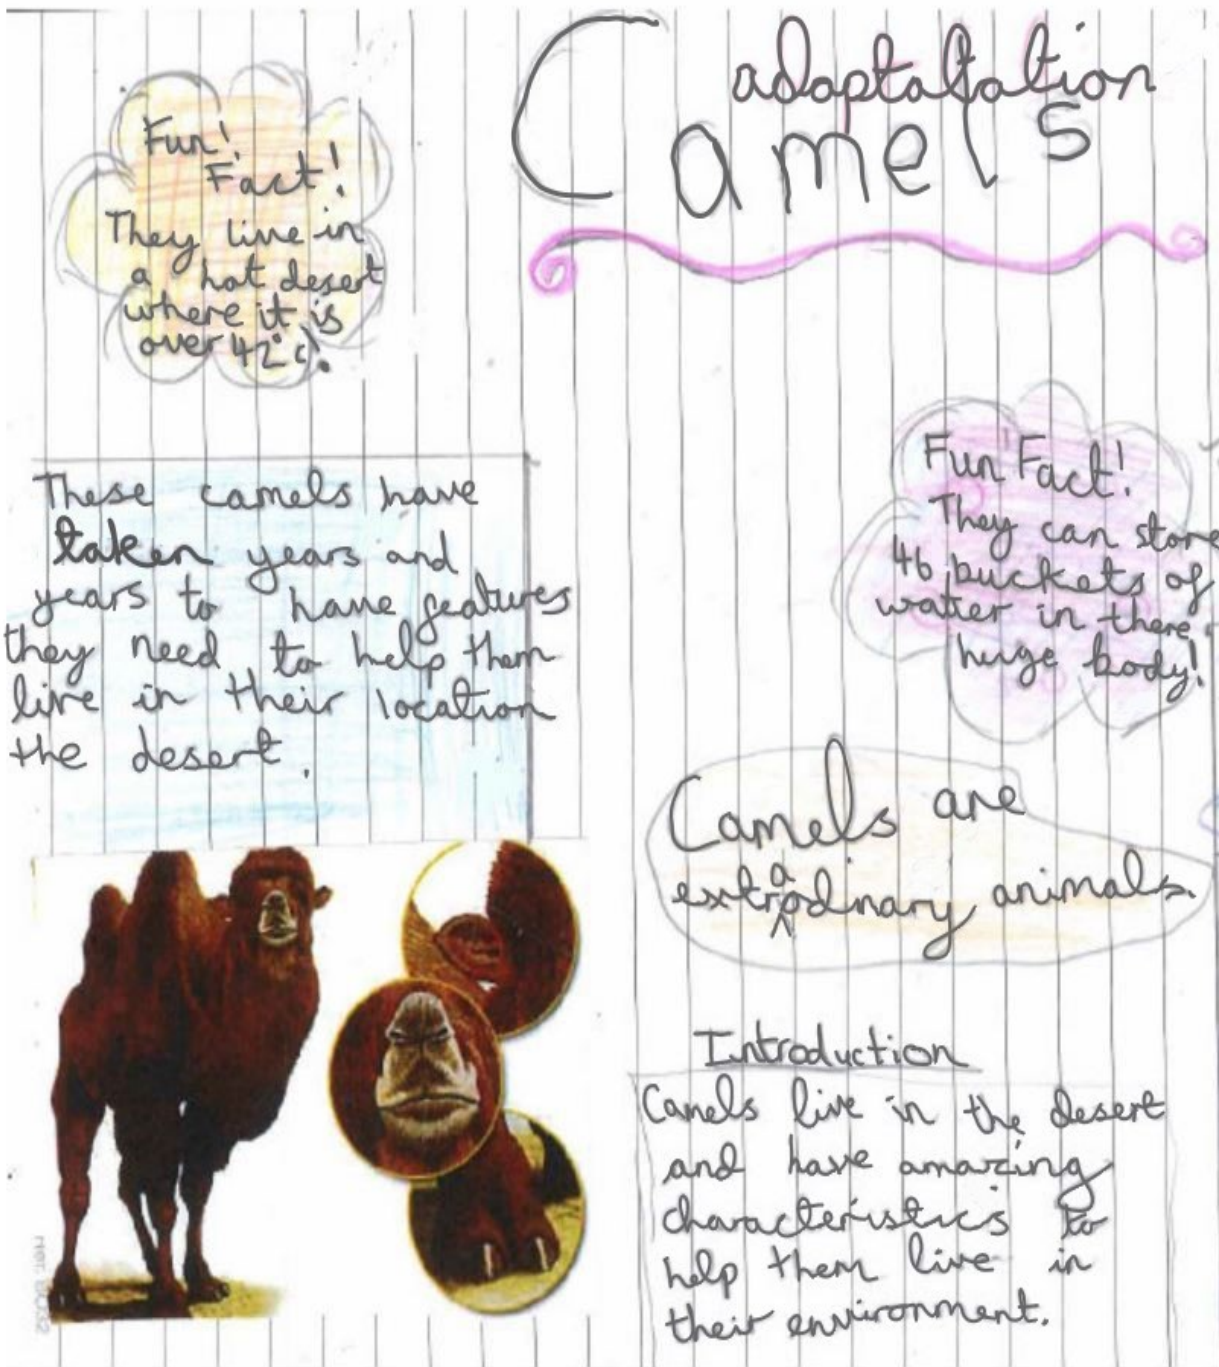 Camels
adaptatation
Fun!
Fact!
They live in
a hot desert
where it is
over 42°c!.
These camels have
taken years and
years to have features
they need to help them
live in their location
the desert.
Fun Fact!
They can store
46 buckets of
water in there
huge body!
Camels are
extraodinary animals.
Introduction
Camels live in the desert
and have amazing
characteristics to
help them live in
their environment.